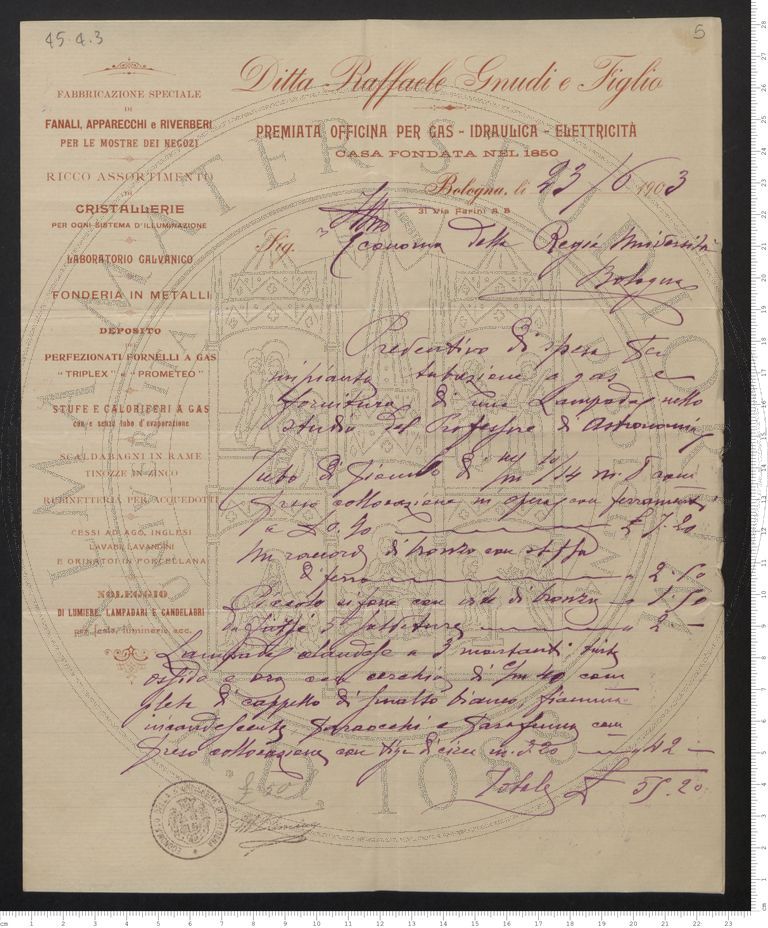 45.4.3
5
Ditta Raffaele Gnudi e Figlio
PREMIATA OFFICINA PER GAS - IDRAULICA - ELETTRICITÀ
CASA FONDATA NEL 1850
Bologna, li 23/6 1903
31 Via Farini
Sig. Economo della Regia Università
Bologna
FABBRICAZIONE SPECIALE
DI
FANALI, APPARECCHI e RIVERBERI
PER LE MOSTRE DEI NEGOZI
RICCO ASSORTIMENTO
IN
CRISTALLERIE
PER OGNI SISTEMA D'ILLUMINAZIONE
LABORATORIO GALVANICO
FONDERIA IN METALLI
DEPOSITO
PERFEZIONATI FORNELLI A GAS
"TRIPLEX" e "PROMETEO"
STUFE E CALORIFERI A GAS
con e senza tubo d'evaporazione
SCALDABAGNI IN RAME
TINOZZE IN ZINCO
RUBINETTERIA PER ACQUEDOTTI
CESSI AD AGO, INGLESI
LAVABI, LAVANDINI
E ORINATOI IN PORCELLANA
NOLEGGIO
DI LUMIERE, LAMPADARI E CANDELABRI
per feste, luminarie ecc.
Preventivo di spesa
impianto tubazione a gas e
fornitura di una Lampada nello
studio del Professore di Astronomia
Tubo di piombo di 10/14 m. 8
preso collocazione in opera con
a £ 0.90 £ 7.20
Un raccordo di bronzo con staffa
di ferro 2.50
Piccolo sifone con vite di bronzo 1.50
5 2 -
Lampada olandese a 3 montanti
ossido e oro con cerchio di c/m 40 con
di cappello di smalto bianco,
incandescente, e con
preso collocazione con m. 42 -
Totale £ 55.20
£ 50
ECONOMATO DELLA R. UNIVERSITÀ DI BOLOGNA
ALMA MATER STUDIORUM
A.D. 1088